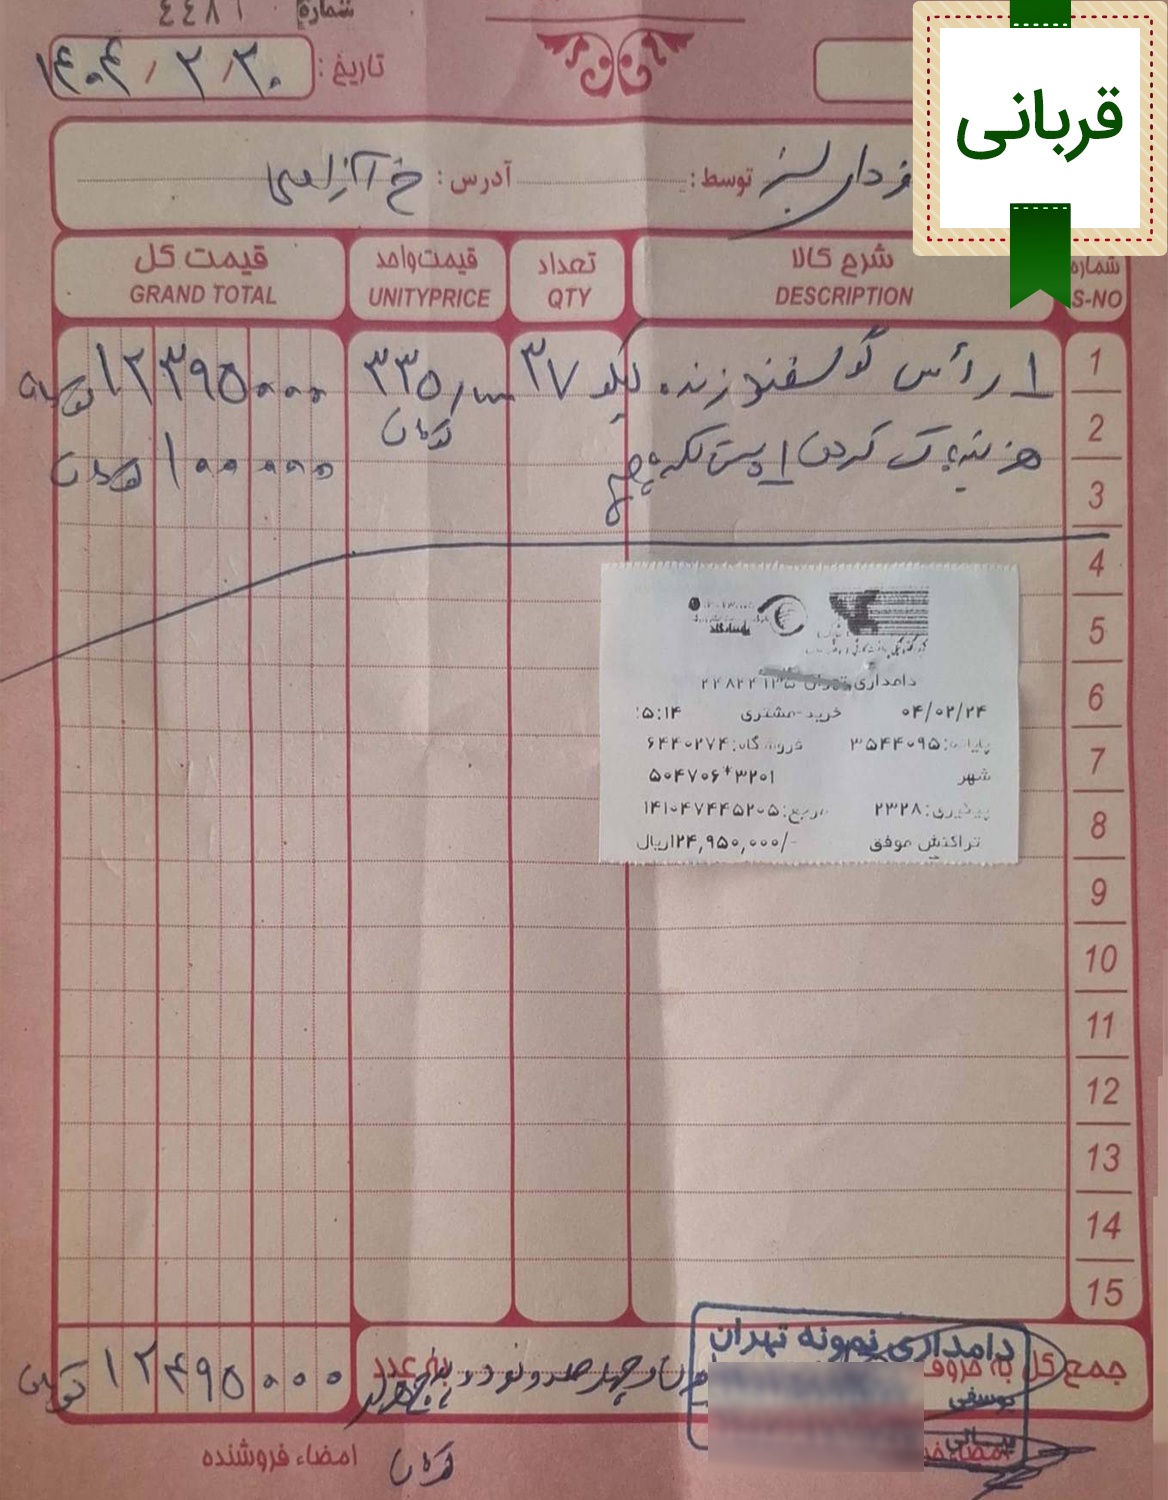 شماره ٤٤٨١
قربانی
تاریخ: ۱۴۰۴/۲/۳۰
توسط: آدرس: خ آزادی
شماره شرح کالا تعداد قیمت واحد قیمت کل
S-NO DESCRIPTION QTY UNITYPRICE GRAND TOTAL
1 ۱ رأس گوسفند زنده ۳۷ کیلو ۳۳۵۰۰۰ تومان ۱۲۳۹۵۰۰۰ تومان
2
3 هزینه پاک کردن ۱ دست کله پاچه ۱۰۰۰۰۰ تومان
4
5
6
7
8
9
10
11
12
13
14
15
دامداری تهران
۰۴/۰۲/۲۴ خرید-مشتری :۵:۱۴
پایانه:۳۵۴۴۰۹۵ فروشگاه:۶۴۴۰۲۷۴
شهر ۵۰۴۷۰۶*۳۲۰۱
پیگیری:۲۳۲۸ مرجع:۱۴۱۰۴۷۴۴۵۲۰۵
تراکنش موفق ۱۲۴,۹۵۰,۰۰۰/-ریال
دامداری نمونه تهران
جمع کل به حروف چهارصد و نود و پنج هزار تومان عدد ۱۲۴۹۵۰۰۰ تومان
یوسفی
امضاء فروشنده